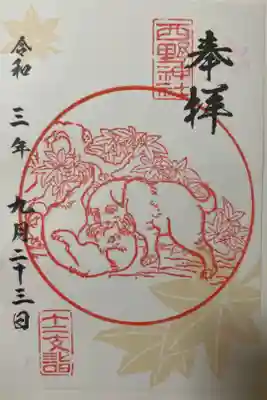 奉拝
西野神社
令和三年九月二十三日
十二支詣